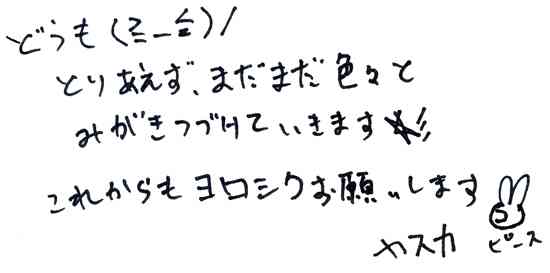 どうも(ミ_ミ)/
とりあえず、まだまだ色々と
みがきつづけていきます☆彡
これからもヨロシクお願いします
ヤスカ ピース